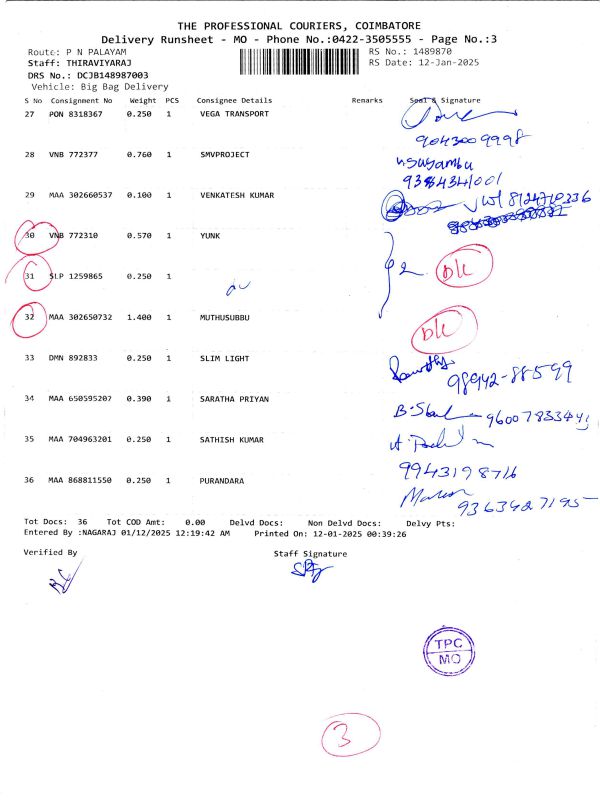 THE PROFESSIONAL COURIERS, COIMBATORE
Delivery Runsheet - MO - Phone No.:0422-3505555 - Page No.:3
Route: P N PALAYAM RS No.: 1489870
Staff: THIRAVIYARAJ RS Date: 12-Jan-2025
DRS No.: DCJB148987003
Vehicle: Big Bag Delivery
S No Consignment No Weight PCS Consignee Details Remarks Seal & Signature
27 PON 8318367 0.250 1 VEGA TRANSPORT
9043009998
28 VNB 772377 0.760 1 SMVPROJECT
9384341001
29 MAA 302660537 0.100 1 VENKATESH KUMAR 8124710336
30 VNB 772310 0.570 1 YUNK
31 SLP 1259865 0.250 1
32 MAA 302650732 1.400 1 MUTHUSUBBU
33 DMN 892833 0.250 1 SLIM LIGHT
98942-88599
34 MAA 650595207 0.390 1 SARATHA PRIYAN
35 MAA 704963201 0.250 1 SATHISH KUMAR
9943198716
36 MAA 868811550 0.250 1 PURANDARA
9363427195
Tot Docs: 36 Tot COD Amt: 0.00 Delvd Docs: Non Delvd Docs: Delvy Pts:
Entered By :NAGARAJ 01/12/2025 12:19:42 AM Printed On: 12-01-2025 00:39:26
Verified By Staff Signature
TPC
MO
3